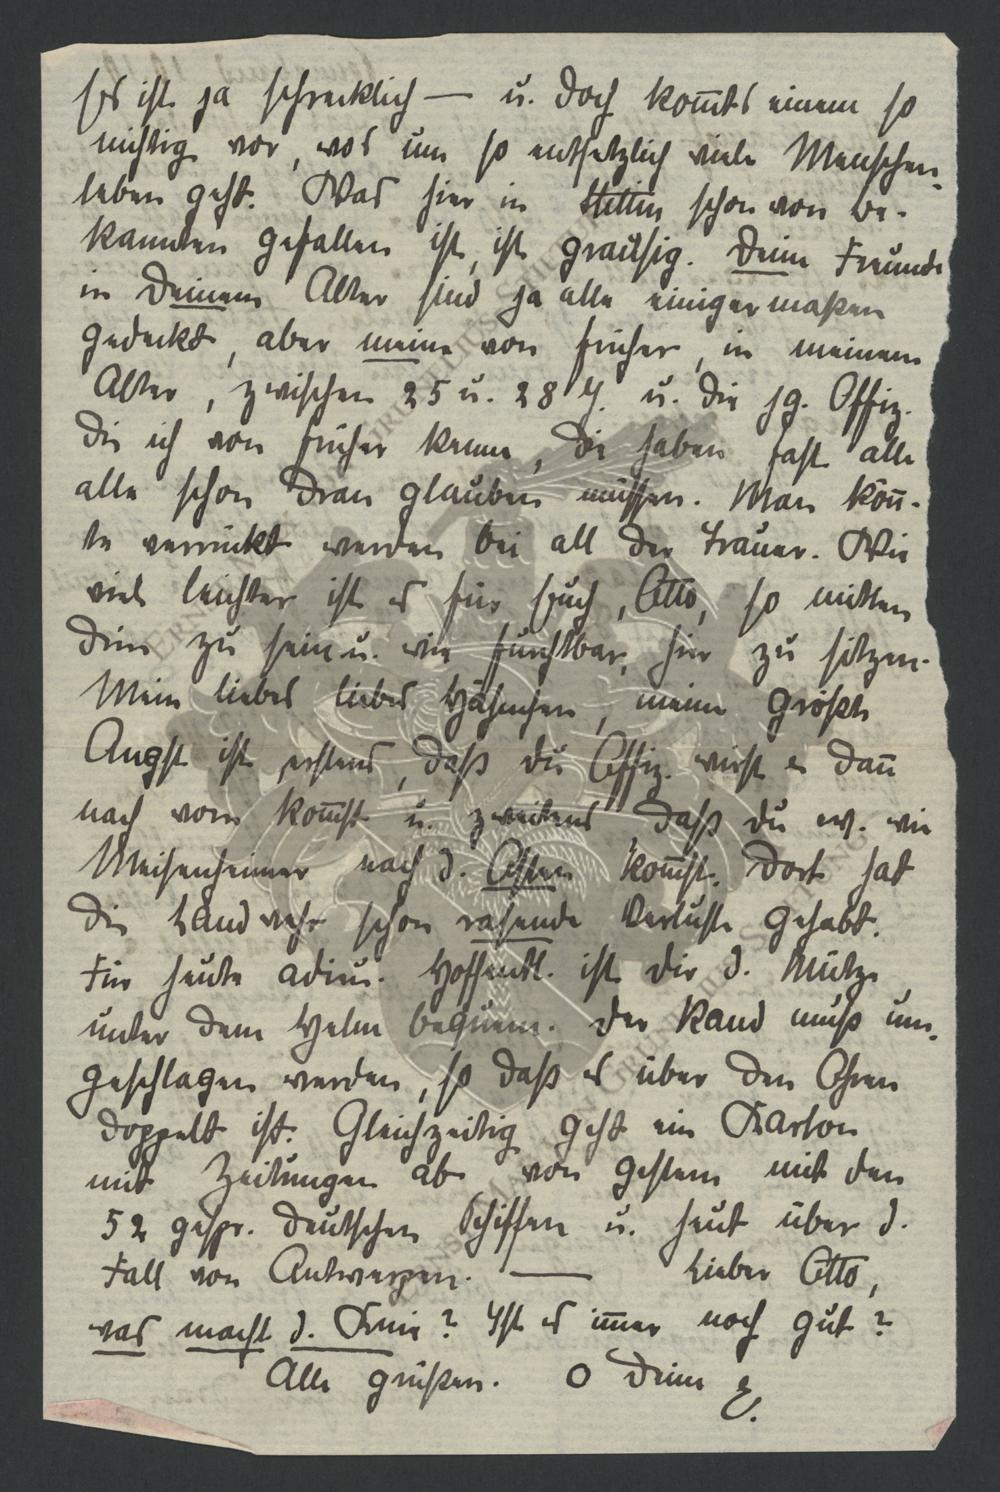 Es ist ja schrecklich — u. doch kom̅ts einem so
nichtig vor, wos um so entsetzlich viele Menschen-
leben geht. Was hier in Stettin schon von Be-
kannten gefallen ist, ist grausig. Deine Freunde
in Deinem Alter sind ja alle einigermaßen
gedeckt, aber meine von früher, in meinem
Alter, zwischen 25 u. 28 J. u. die jg. Offiz.
die ich von früher kenne, die haben fast alle
alle schon dran glauben müssen. Man kön̅-
te verrückt werden bei all der Trauer. Wie
viel leichter ist es für Euch, Otto, so mitten
drin zu sein u. wie furchtbar, hier zu sitzen.
Mein liebes liebes Hähnchen, meine größte
Angst ist erstens, daß du Offiz. wirst u. dan̅
nach vorn kom̅st u. zweitens daß du ev. wie
Meisenheimer nach d. Osten kom̅st. Dort hat
die Landwehr schon rasende Verluste gehabt.
Für heute adieu. Hoffentl. ist dir d. Mütze
unter dem Helm bequem. Der Rand muß um-
geschlagen werden, so daß es über den Ohren
doppelt ist. Gleichzeitig geht ein Karton
mit Zeitungen ab von gestern mit den
52 gespr. deutschen Schiffen u. heut über d.
Fall von Antwerpen. — Lieber Otto,
was macht d. Knie? Ist es im̅er noch gut?
Alle grüßen. O Deine E.